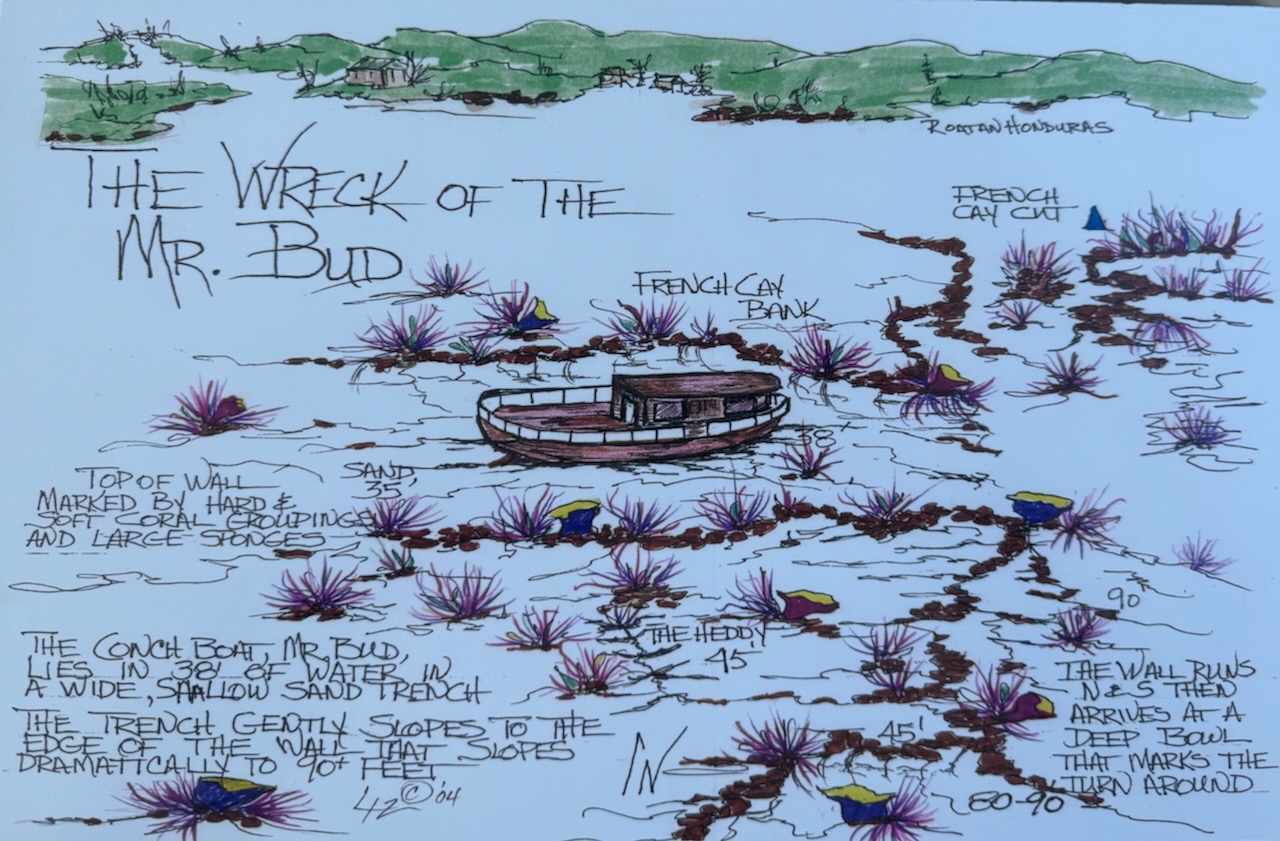 ROATAN HONDURAS
THE WRECK OF THE
MR. BUD
FRENCH
CAY CUT
FRENCH CAY
BANK
38'
TOP OF WALL
MARKED BY HARD &
SOFT CORAL GROUPINGS
AND LARGE SPONGES
SAND,
35'
90'
THE HEDDY
45'
THE CONCH BOAT, MR. BUD,
LIES IN 38' OF WATER IN
A WIDE, SHALLOW SAND TRENCH
THE TRENCH GENTLY SLOPES TO THE
EDGE OF THE WALL THAT SLOPES
DRAMATICALLY TO 90+ FEET
N
45'
THE WALL RUNS
N & S THEN
ARRIVES AT A
DEEP BOWL
THAT MARKS THE
TURN AROUND
80-90
©'04